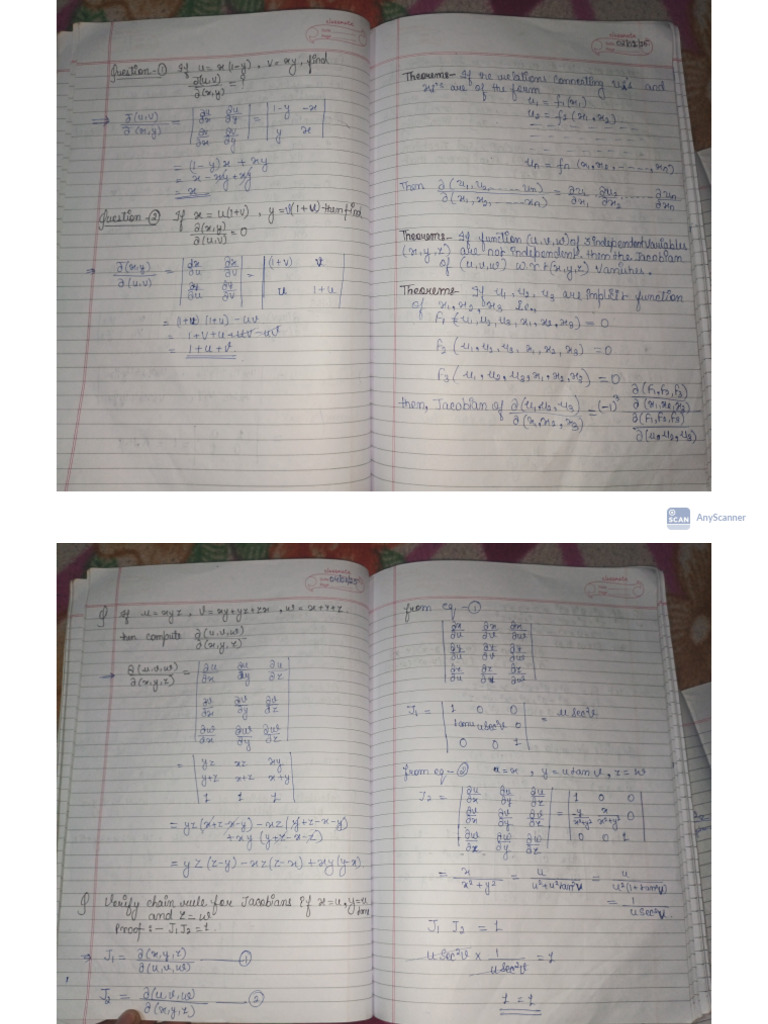 classmate
Date
Page
Question-① If u = x(1-y), v = xy, find
∂(u,v)/∂(x,y) = ?
⇒ ∂(u,v)/∂(x,y) = | ∂u/∂x ∂u/∂y ; ∂v/∂x ∂v/∂y | = | 1-y -x ; y x |
= (1-y)x + xy
= x - xy + xy
= x
Question-② If x = u(1+v), y = v(1+u) then find
∂(x,y)/∂(u,v) = 0
⇒ ∂(x,y)/∂(u,v) = | ∂x/∂u ∂x/∂v ; ∂y/∂u ∂y/∂v | = | (1+v) v ; u 1+u |
= (1+v)(1+u) - uv
= 1+v+u+uv-uv
= 1+u+v
classmate
Date
Page
Theorem:- If the relations connecting and
are of the form
u₁ = f₁(x₁)
u₂ = f₂(x₁,x₂)
uₙ = fₙ(x₁,x₂,.....,xₙ)
Then ∂(u₁,u₂,......uₙ)/∂(x₁,x₂,......xₙ) = ∂u₁/∂x₁ . ∂u₂/∂x₂ ....... ∂uₙ/∂xₙ
Theorem:- If function (u,v,w) of 3 independent variables
(x,y,z) are not independent, then the Jacobian
of (u,v,w) w.r.t (x,y,z) vanishes.
Theorem:- If u₁, u₂, u₃ are function
of x₁, x₂, x₃ i.e.,
F₁ (u₁,u₂,u₃,x₁,x₂,x₃) = 0
F₂ (u₁,u₂,u₃,x₁,x₂,x₃) = 0
F₃ (u₁,u₂,u₃,x₁,x₂,x₃) = 0
then, Jacobian of ∂(u₁,u₂,u₃)/∂(x₁,x₂,x₃) = (-1)³ ∂(F₁,F₂,F₃)/∂(x₁,x₂,x₃) / ∂(F₁,F₂,F₃)/∂(u₁,u₂,u₃)
SCAN AnyScanner
classmate
Date
Page
Q If u = xyz, v = xy+yz+zx, w = x+y+z
then compute ∂(u,v,w)/∂(x,y,z)
→ ∂(u,v,w)/∂(x,y,z) = | ∂u/∂x ∂u/∂y ∂u/∂z ; ∂v/∂x ∂v/∂y ∂v/∂z ; ∂w/∂x ∂w/∂y ∂w/∂z |
= | yz xz xy ; y+z x+z x+y ; 1 1 1 |
= yz(x+z-x-y) - xz(y+z-x-y)
+ xy (y+z-x-z)
= yz(z-y) - xz(z-x) + xy(y-x)
Q Verify chain rule for Jacobians If x=u, y=u tanv
and z = w
Proof:- J₁J₂ = 1
⇒ J₁ = ∂(x,y,z)/∂(u,v,w) —①
J₂ = ∂(u,v,w)/∂(x,y,z) —②
classmate
Date
Page
from eq-①
| ∂x/∂u ∂x/∂v ∂x/∂w ; ∂y/∂u ∂y/∂v ∂y/∂w ; ∂z/∂u ∂z/∂v ∂z/∂w |
J₁ = | 1 0 0 ; tanv u sec²v 0 ; 0 0 1 | = u sec²v
from eq-② u = x, y = u tan v, z = w
J₂ = | ∂u/∂x ∂u/∂y ∂u/∂z ; ∂v/∂x ∂v/∂y ∂v/∂z ; ∂w/∂x ∂w/∂y ∂w/∂z | = | 1 0 0 ; -y/x²+y² x/x²+y² 0 ; 0 0 1 |
= x/x²+y² = u/u²+u²tan²v = u/u²(1+tan²v)
= 1/u sec²v
J₁ J₂ = 1
u sec²v × 1/u sec²v = 1
1 = 1